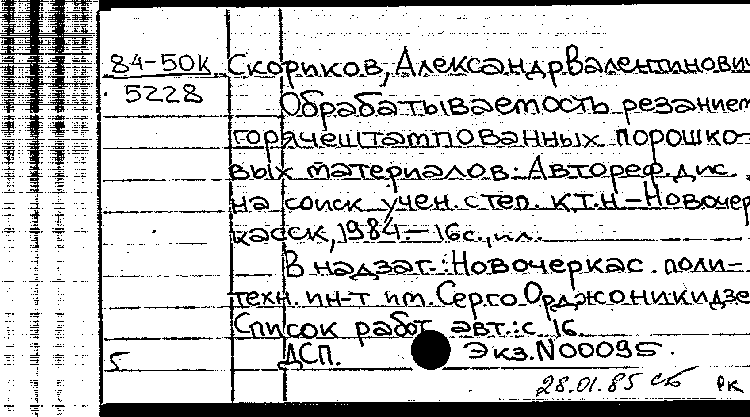 84-50К Скориков, Александр Валентинович
5228 Обрабатываемость резанием
горячештампованных порошко-
вых материалов: Автореф. дис.
на соиск учен. степ. к.т.н – Новочер
касск, 1984. – 16с., ил.
В надзаг.: Новочеркас. поли-
техн. ин-т им. Серго Орджоникидзе
Список работ авт.: с. 16.
5 ДСП. Экз. N00095.
28.01.85 сб рк